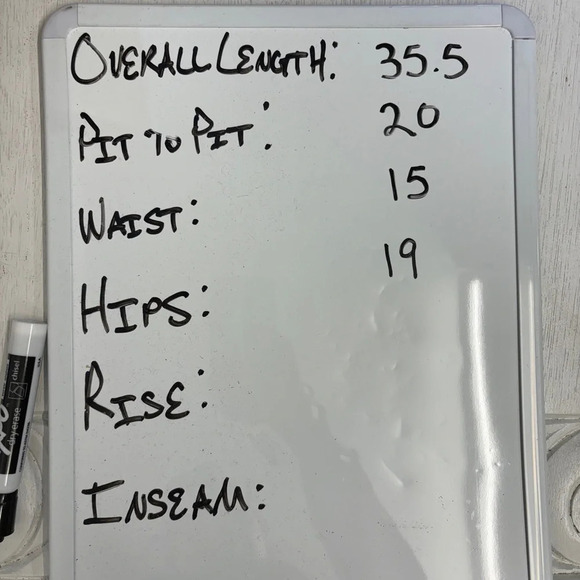 OVERALL LENGTH: 35.5
PIT TO PIT: 20
WAIST: 15
HIPS: 19
RISE:
INSEAM:
chisel
dry erase